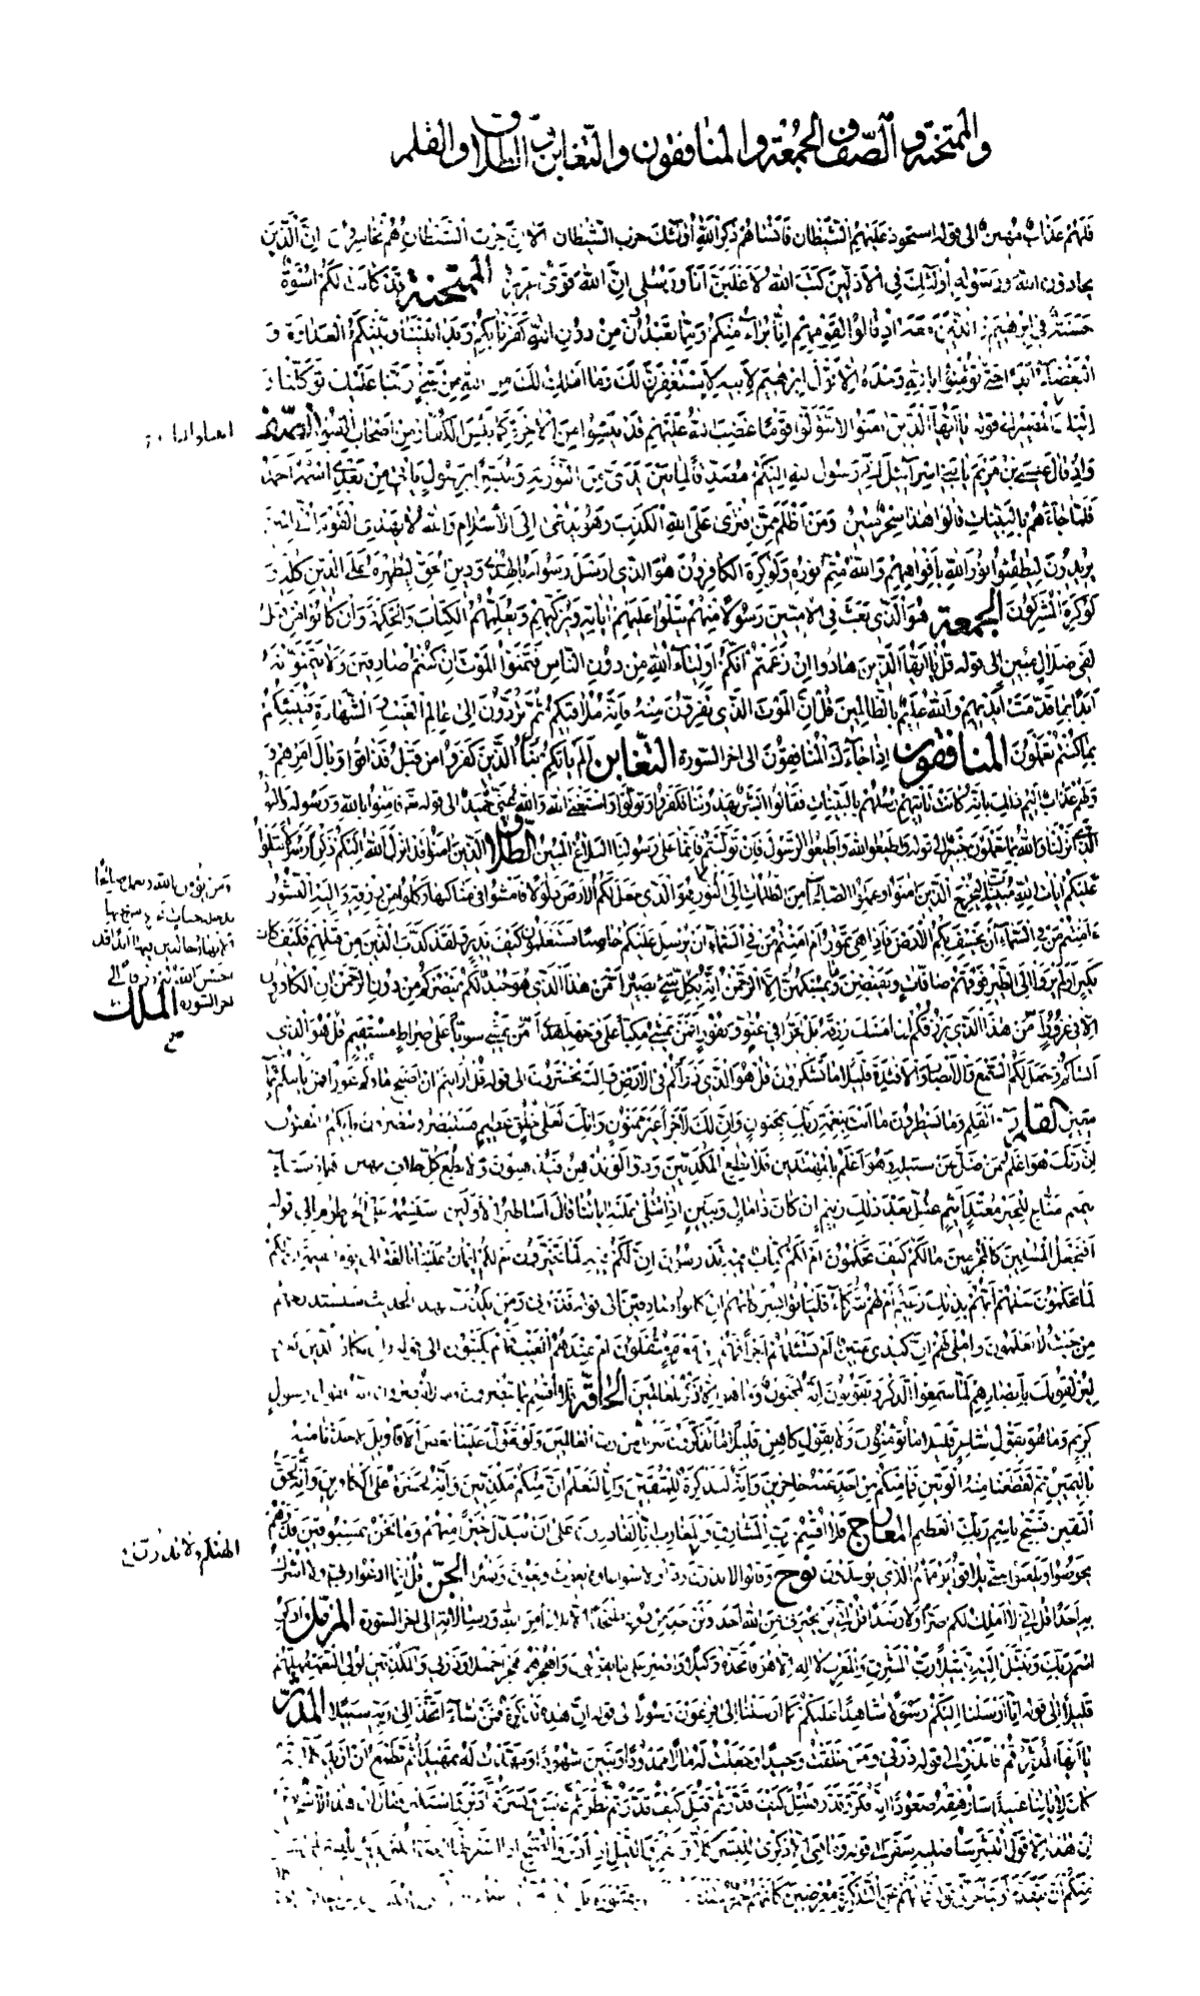 والممتحنة والصف والجمعة والمنافقون والتغابن والطلاق والقلم
فلهم عذاب مهين الى قوله استحوذ عليهم الشيطان فانساهم ذكر الله اولئك حزب الشيطان الا ان حزب الشيطان هم الخاسرون ان الذين
يحادون الله ورسوله اولئك في الاذلين كتب الله لاغلبن انا ورسلي ان الله قوي عزيز الممتحنة قد كانت لكم اسوة
حسنة في ابرهيم والذين معه اذ قالوا لقومهم انا برآء منكم ومما تعبدون من دون الله كفرنا بكم وبدا بيننا وبينكم العداوة و
البغضاء ابدا حتى تؤمنوا بالله وحده الا قول ابرهيم لابيه لاستغفرن لك وما املك لك من الله من شئ ربنا عليك توكلنا و
المصير الى قوله يا ايها الذين امنوا لا تتولوا قوما غضب الله عليهم قد يئسوا من الاخرة كما يئس الكفار من اصحاب القبور الصف
واذ قال عيسى بن مريم يا بني اسرآئيل اني رسول الله اليكم مصدقا لما بين يدي من التورية ومبشرا برسول ياتي من بعدي اسمه احمد
فلما جاءهم بالبينات قالوا هذا سحر مبين ومن اظلم ممن افترى على الله الكذب وهو يدعى الى الاسلام والله لا يهدي القوم الظالمين
يريدون ليطفئوا نور الله بافواههم والله متم نوره ولو كره الكافرون هو الذي ارسل رسوله بالهدى ودين الحق ليظهره على الدين كله و
لو كره المشركون الجمعة هو الذي بعث في الاميين رسولا منهم يتلوا عليهم اياته ويزكيهم ويعلمهم الكتاب والحكمة وان كانوا من قبل
لفي ضلال مبين الى قوله قل يا ايها الذين هادوا ان زعمتم انكم اولياء لله من دون الناس فتمنوا الموت ان كنتم صادقين ولا يتمنونه
ابدا بما قدمت ايديهم والله عليم بالظالمين قل ان الموت الذي تفرون منه فانه ملاقيكم ثم تردون الى عالم الغيب والشهادة فينبئكم
بما كنتم تعملون المنافقون اذا جاءك المنافقون الى اخر السورة التغابن الم ياتكم نبأ الذين كفروا من قبل فذاقوا وبال امرهم و
ولهم عذاب اليم ذلك بانه كانت تاتيهم رسلهم بالبينات فقالوا ابشر يهدوننا فكفروا وتولوا واستغنى الله والله غني حميد الى قوله فامنوا بالله ورسوله والنور
الذي انزلنا والله بما تعملون خبير الى قوله واطيعوا الله واطيعوا الرسول فان توليتم فانما على رسولنا البلاغ المبين الطلاق الذين امنوا قد انزل الله اليكم ذكرا رسولا يتلوا
عليكم ايات الله مبينات ليخرج الذين امنوا وعملوا الصالحات من الظلمات الى النور هو الذي جعل لكم الارض ذلولا فامشوا في مناكبها وكلوا من رزقه واليه النشور
ءامنتم من في السماء ان يخسف بكم الارض فاذا هي تمور ام امنتم من في السماء ان يرسل عليكم حاصبا فستعلمون كيف نذير ولقد كذب الذين من قبلهم فكيف كان
نكير اولم يروا الى الطير فوقهم صافات ويقبضن ما يمسكهن الا الرحمن انه بكل شئ بصير امن هذا الذي هو جند لكم ينصركم من دون الرحمن ان الكافرون
الا في غرور امن هذا الذي يرزقكم ان امسك رزقه بل لجوا في عتو ونفور افمن يمشي مكبا على وجهه اهدى امن يمشي سويا على صراط مستقيم قل هو الذي
انشاكم وجعل لكم السمع والابصار والافئدة قليلا ما تشكرون قل هو الذي ذراكم في الارض واليه تحشرون الى قوله قل ارايتم ان اصبح ماؤكم غورا فمن ياتيكم بماء
معين القلم ن والقلم وما يسطرون ما انت بنعمة ربك بمجنون وان لك لاجرا غير ممنون وانك لعلى خلق عظيم فستبصر ويبصرون بايكم المفتون
ان ربك هو اعلم بمن ضل عن سبيله وهو اعلم بالمهتدين فلا تطع المكذبين ودوا لو تدهن فيدهنون ولا تطع كل حلاف مهين هماز مشاء
بنميم مناع للخير معتد اثيم عتل بعد ذلك زنيم ان كان ذا مال وبنين اذا تتلى عليه اياتنا قال اساطير الاولين سنسمه على الخرطوم الى قوله
افنجعل المسلمين كالمجرمين ما لكم كيف تحكمون ام لكم كتاب فيه تدرسون ان لكم فيه لما تخيرون ام لكم ايمان علينا بالغة الى يوم القيمة ان لكم
لما تحكمون سلهم ايهم بذلك زعيم ام لهم شركاء فلياتوا بشركائهم ان كانوا صادقين الى قوله فذرني ومن يكذب بهذا الحديث سنستدرجهم
من حيث لا يعلمون واملي لهم ان كيدي متين ام تسئلهم اجرا فهم من مغرم مثقلون ام عندهم الغيب فهم يكتبون الى قوله وان يكاد الذين كفروا
ليزلقونك بابصارهم لما سمعوا الذكر ويقولون انه لمجنون وما هو الا ذكر للعالمين الحاقة فلا اقسم بما تبصرون وما لا تبصرون انه لقول رسول
كريم وما هو بقول شاعر قليلا ما تؤمنون ولا بقول كاهن قليلا ما تذكرون تنزيل من رب العالمين ولو تقول علينا بعض الاقاويل لاخذنا منه
باليمين ثم لقطعنا منه الوتين فما منكم من احد عنه حاجزين وانه لتذكرة للمتقين وانا لنعلم ان منكم مكذبين وانه لحسرة على الكافرين وانه لحق
اليقين فسبح باسم ربك العظيم المعارج فلا اقسم برب المشارق والمغارب انا لقادرون على ان نبدل خيرا منهم وما نحن بمسبوقين فذرهم
يخوضوا ويلعبوا حتى يلاقوا يومهم الذي يوعدون نوح وقالوا لا تذرن ودا ولا سواعا ولا يغوث ويعوق ونسرا الجن قل انما ادعوا ربي ولا اشرك
به احدا قل اني لا املك لكم ضرا ولا رشدا قل اني لن يجيرني من الله احد ولن اجد من دونه ملتحدا الا بلاغا من الله ورسالاته الى اخر السورة المزمل واذكر
اسم ربك وتبتل اليه تبتيلا رب المشرق والمغرب لا اله الا هو فاتخذه وكيلا واصبر على ما يقولون واهجرهم هجرا جميلا وذرني والمكذبين اولي النعمة ومهلهم
قليلا الى قوله انا ارسلنا اليكم رسولا شاهدا عليكم كما ارسلنا الى فرعون رسولا الى قوله ان هذه تذكرة فمن شاء اتخذ الى ربه سبيلا المدثر
يا ايها المدثر قم فانذر الى قوله ذرني ومن خلقت وحيدا وجعلت له مالا ممدودا وبنين شهودا ومهدت له تمهيدا ثم يطمع ان ازيد كلا انه
كان لاياتنا عنيدا سارهقه صعودا انه فكر وقدر فقتل كيف قدر ثم قتل كيف قدر ثم نظر ثم عبس وبسر ثم ادبر واستكبر فقال ان هذا الا سحر يؤثر
ان هذا الا قول البشر ساصليه سقر الى قوله وما هي الا ذكرى للبشر كلا والقمر والليل اذ ادبر والصبح اذا اسفر
منكم ان يتقدم او يتاخر الى قوله فما لهم عن التذكرة معرضين كانهم حمر مستنفرة
ومن يؤمن بالله ويعمل صالحا
يدخله جنات تجري من تحتها
الانهار خالدين فيها ابدا قد
احسن الله له رزقا الى
اخر السورة الملك
صح
الهتكم ولا تذرن